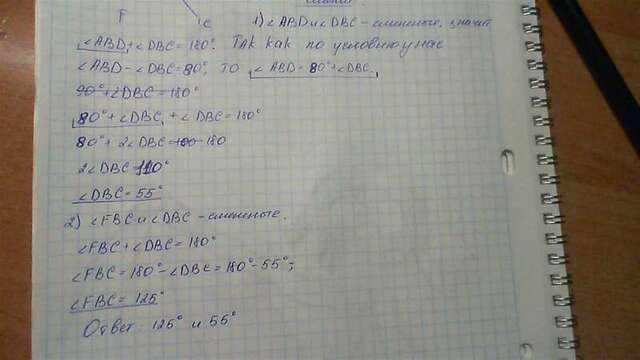 F
C
1) ∠ABD и ∠DBC - смежные, значит
∠ABD + ∠DBC = 180°. Так как по условию у нас
∠ABD - ∠DBC = 80°, то ∠ABD = 80° + ∠DBC.
90° + 2∠DBC = 180°
80° + ∠DBC + ∠DBC = 180°
80° + 2∠DBC = 100 180
2∠DBC 110°
∠DBC = 55°
2) ∠FBC и ∠DBC - смежные.
∠FBC + ∠DBC = 180°
∠FBC = 180° - ∠DBC = 180° - 55°;
∠FBC = 125°
Ответ: 125° и 55°